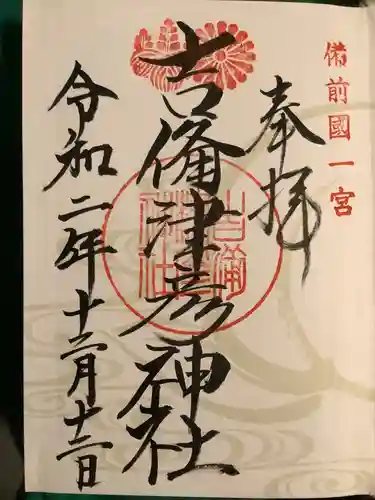 備前國一宮
奉拝
吉備津彦神社
令和二年十二月十二日